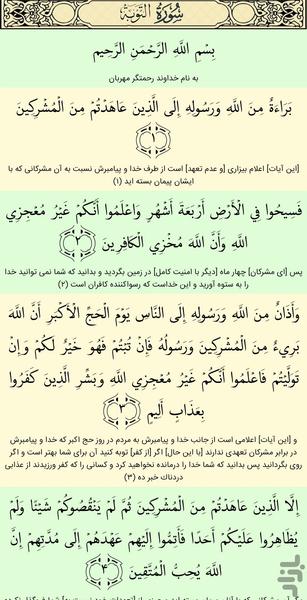 سُورَةُ التَّوْبَةِ
بِسْمِ اللَّهِ الرَّحْمَنِ الرَّحِيمِ
به نام خداوند رحمتگر مهربان
بَرَاءَةٌ مِنَ اللَّهِ وَرَسُولِهِ إِلَى الَّذِينَ عَاهَدْتُمْ مِنَ الْمُشْرِكِينَ
﴿١﴾
[این آیات] اعلام بیزاری [و عدم تعهد] است از طرف خدا و پیامبرش نسبت به آن مشرکانی که با
ایشان پیمان بسته اید (۱)
فَسِيحُوا فِي الْأَرْضِ أَرْبَعَةَ أَشْهُرٍ وَاعْلَمُوا أَنَّكُمْ غَيْرُ مُعْجِزِي
اللَّهِ وَأَنَّ اللَّهَ مُخْزِي الْكَافِرِينَ ﴿٢﴾
پس [ای مشرکان] چهار ماه [دیگر با امنیت کامل] در زمین بگردید و بدانید که شما نمی توانید خدا
را به ستوه آورید و این خداست که رسواکننده کافران است (۲)
وَأَذَانٌ مِنَ اللَّهِ وَرَسُولِهِ إِلَى النَّاسِ يَوْمَ الْحَجِّ الْأَكْبَرِ أَنَّ اللَّهَ
بَرِيءٌ مِنَ الْمُشْرِكِينَ وَرَسُولُهُ فَإِنْ تُبْتُمْ فَهُوَ خَيْرٌ لَكُمْ وَإِنْ
تَوَلَّيْتُمْ فَاعْلَمُوا أَنَّكُمْ غَيْرُ مُعْجِزِي اللَّهِ وَبَشِّرِ الَّذِينَ كَفَرُوا
بِعَذَابٍ أَلِيمٍ ﴿٣﴾
و [این آیات] اعلامی است از جانب خدا و پیامبرش به مردم در روز حج اکبر که خدا و پیامبرش
در برابر مشرکان تعهدی ندارند [با این حال] اگر [از کفر] توبه کنید آن برای شما بهتر است و اگر
روی بگردانید پس بدانید که شما خدا را درمانده نخواهید کرد و کسانی را که کفر ورزیدند از عذابی
دردناک خبر ده (۳)
إِلَّا الَّذِينَ عَاهَدْتُمْ مِنَ الْمُشْرِكِينَ ثُمَّ لَمْ يَنْقُصُوكُمْ شَيْئًا وَلَمْ
يُظَاهِرُوا عَلَيْكُمْ أَحَدًا فَأَتِمُّوا إِلَيْهِمْ عَهْدَهُمْ إِلَى مُدَّتِهِمْ إِنَّ
اللَّهَ يُحِبُّ الْمُتَّقِينَ ﴿٤﴾
بازار